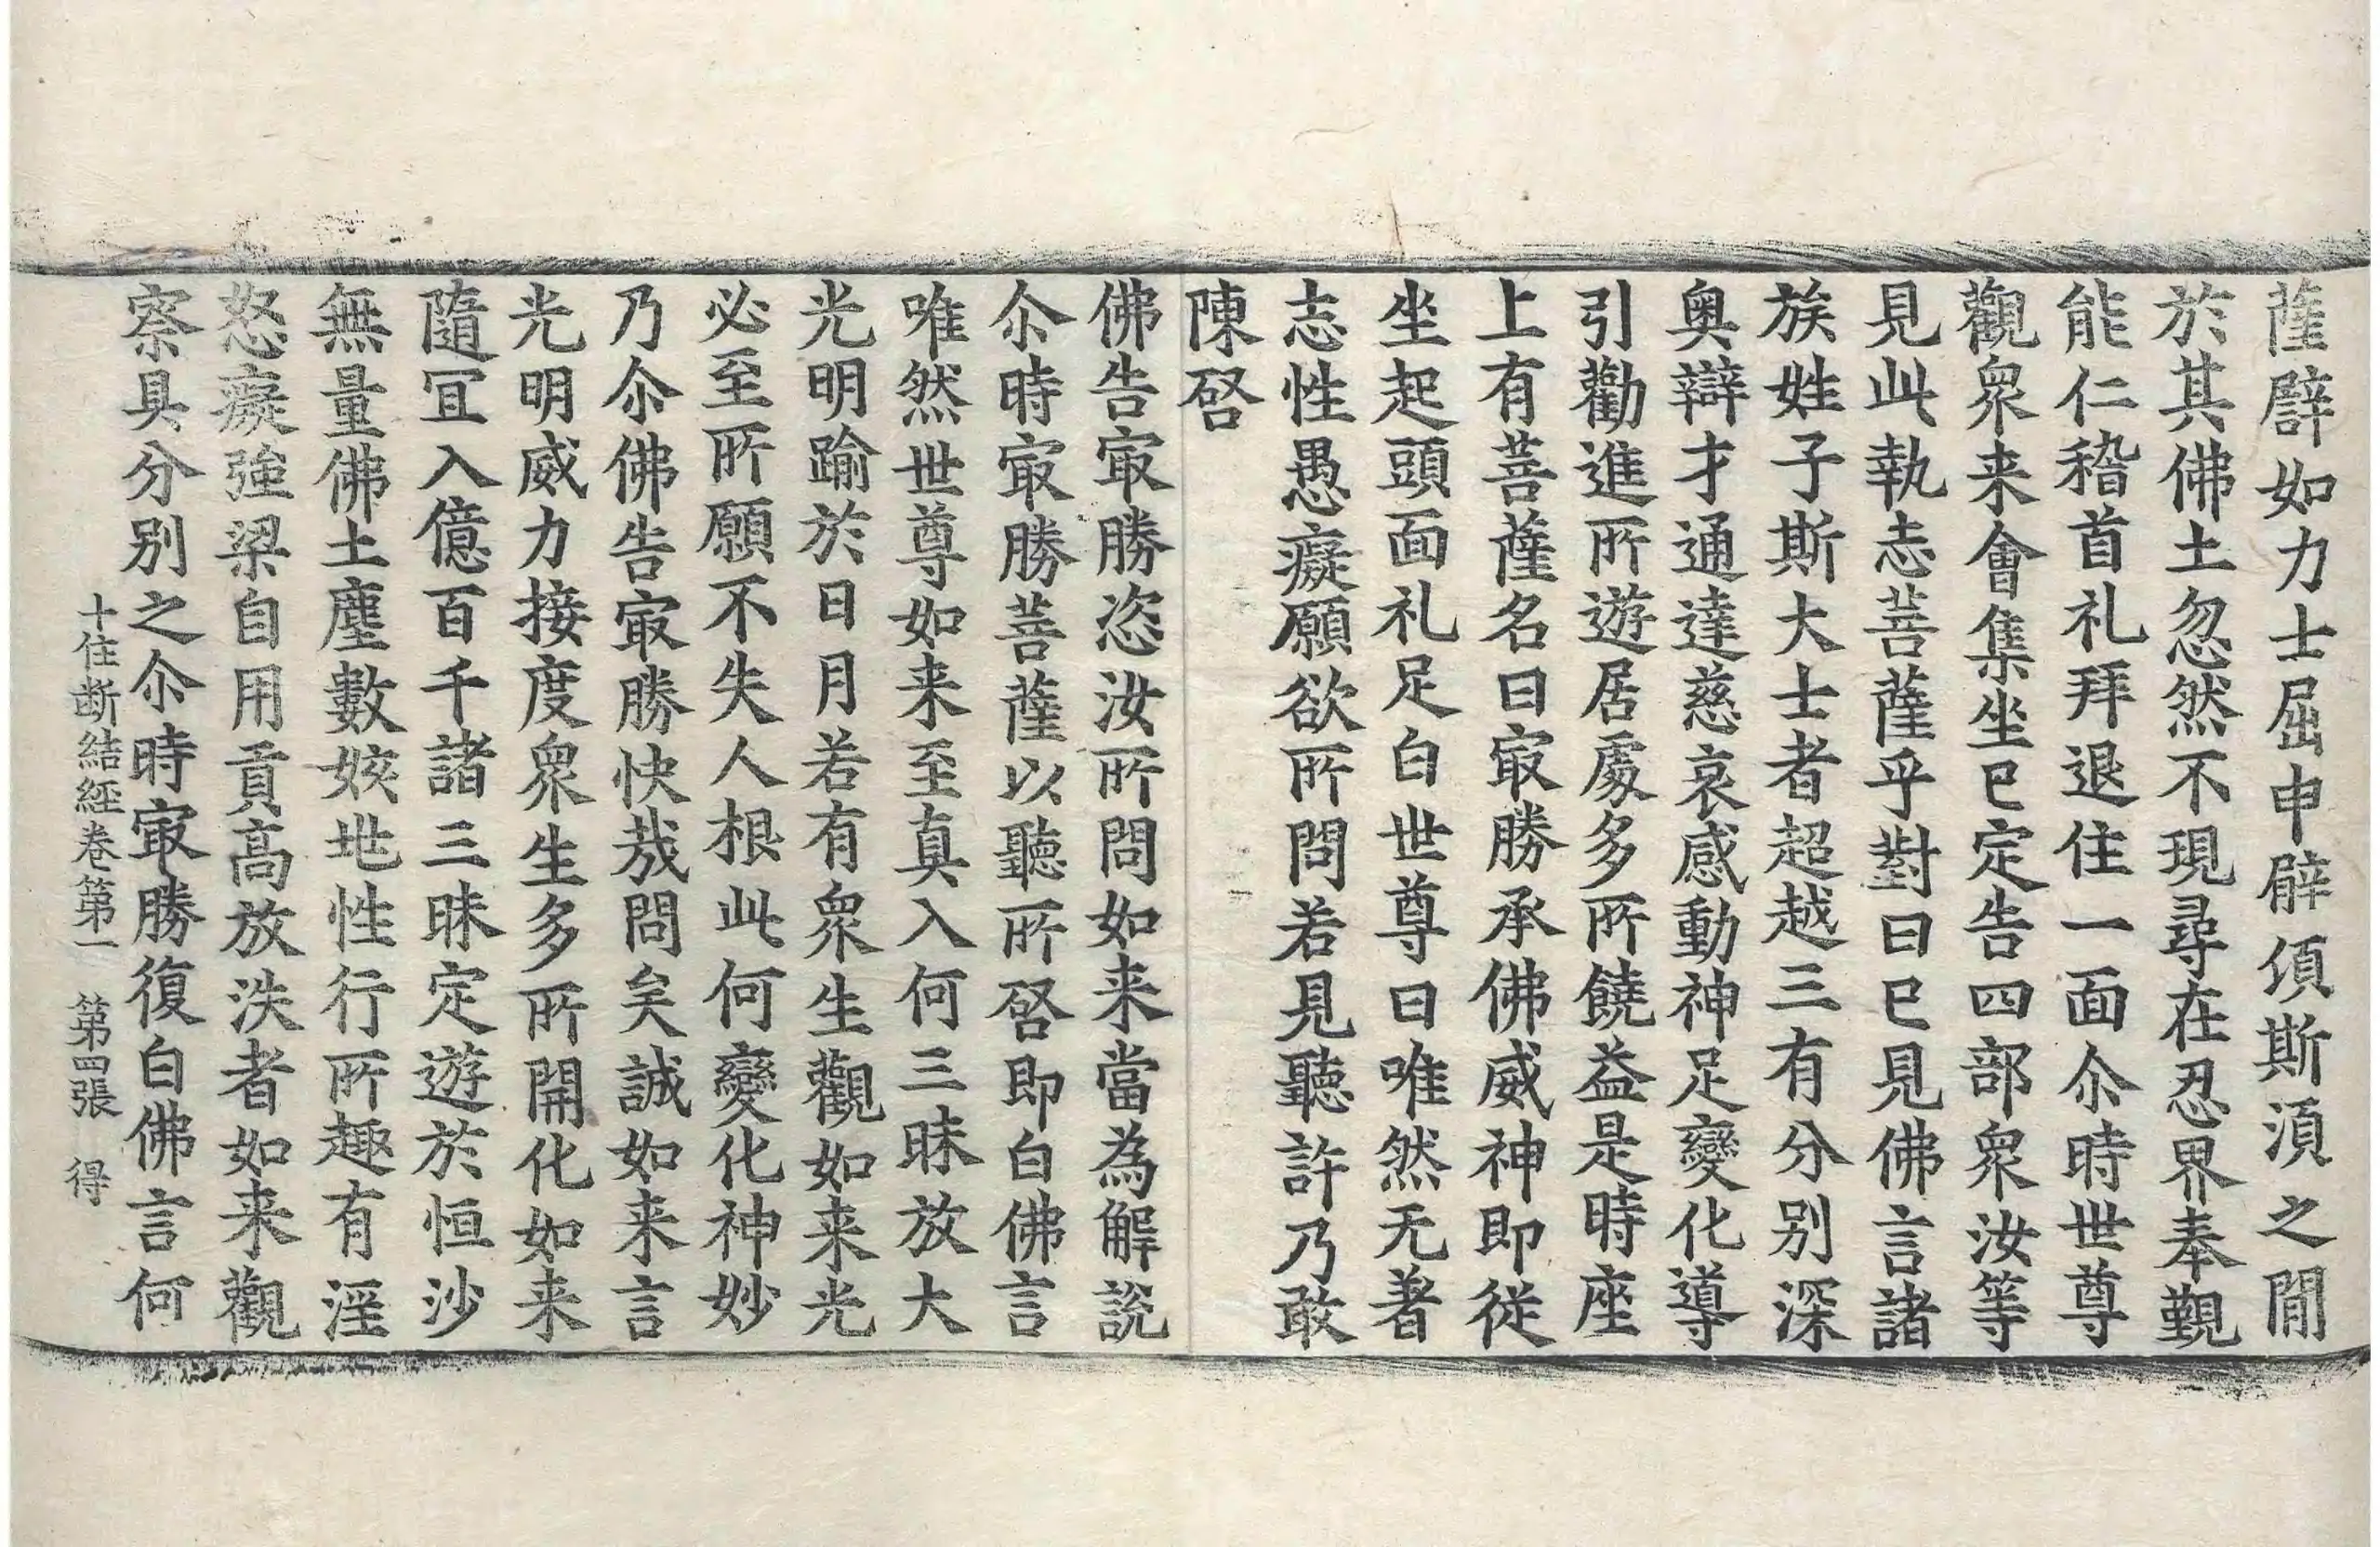 薩譬如力士屈申臂湏斯湏之閒
於其佛土忽然不現尋在忍界奉覲
能仁稽首礼拜退住一面尒時世尊
觀衆来會集坐已定告四部衆汝等
見此執志菩薩乎對曰已見佛言諸
族姓子斯大士者超越三有分別深
奥辯才通達慈哀感動神足變化導
引勸進所遊居處多所饒益是時座
上有菩薩名曰㝡勝承佛威神即従
坐起頭面礼足白世尊曰唯然无著
志性愚癡願欲所問若見聽許乃敢
陳啓
佛告㝡勝恣汝所問如来當為解說
尒時㝡勝菩薩以聽所啓即白佛言
唯然世尊如来至真入何三昧放大
光明踰於日月若有衆生觀如来光
必至所願不失人根此何變化神妙
乃尒佛告㝡勝快哉問矣誠如来言
光明威力接度衆生多所開化如来
隨冝入億百千諸三昧定遊於恒沙
無量佛土塵數姟地性行所趣有婬
怒癡強梁自用貢高放泆者如来觀
察具分別之尒時㝡勝復白佛言何
十住断結経卷第一 第四張 得